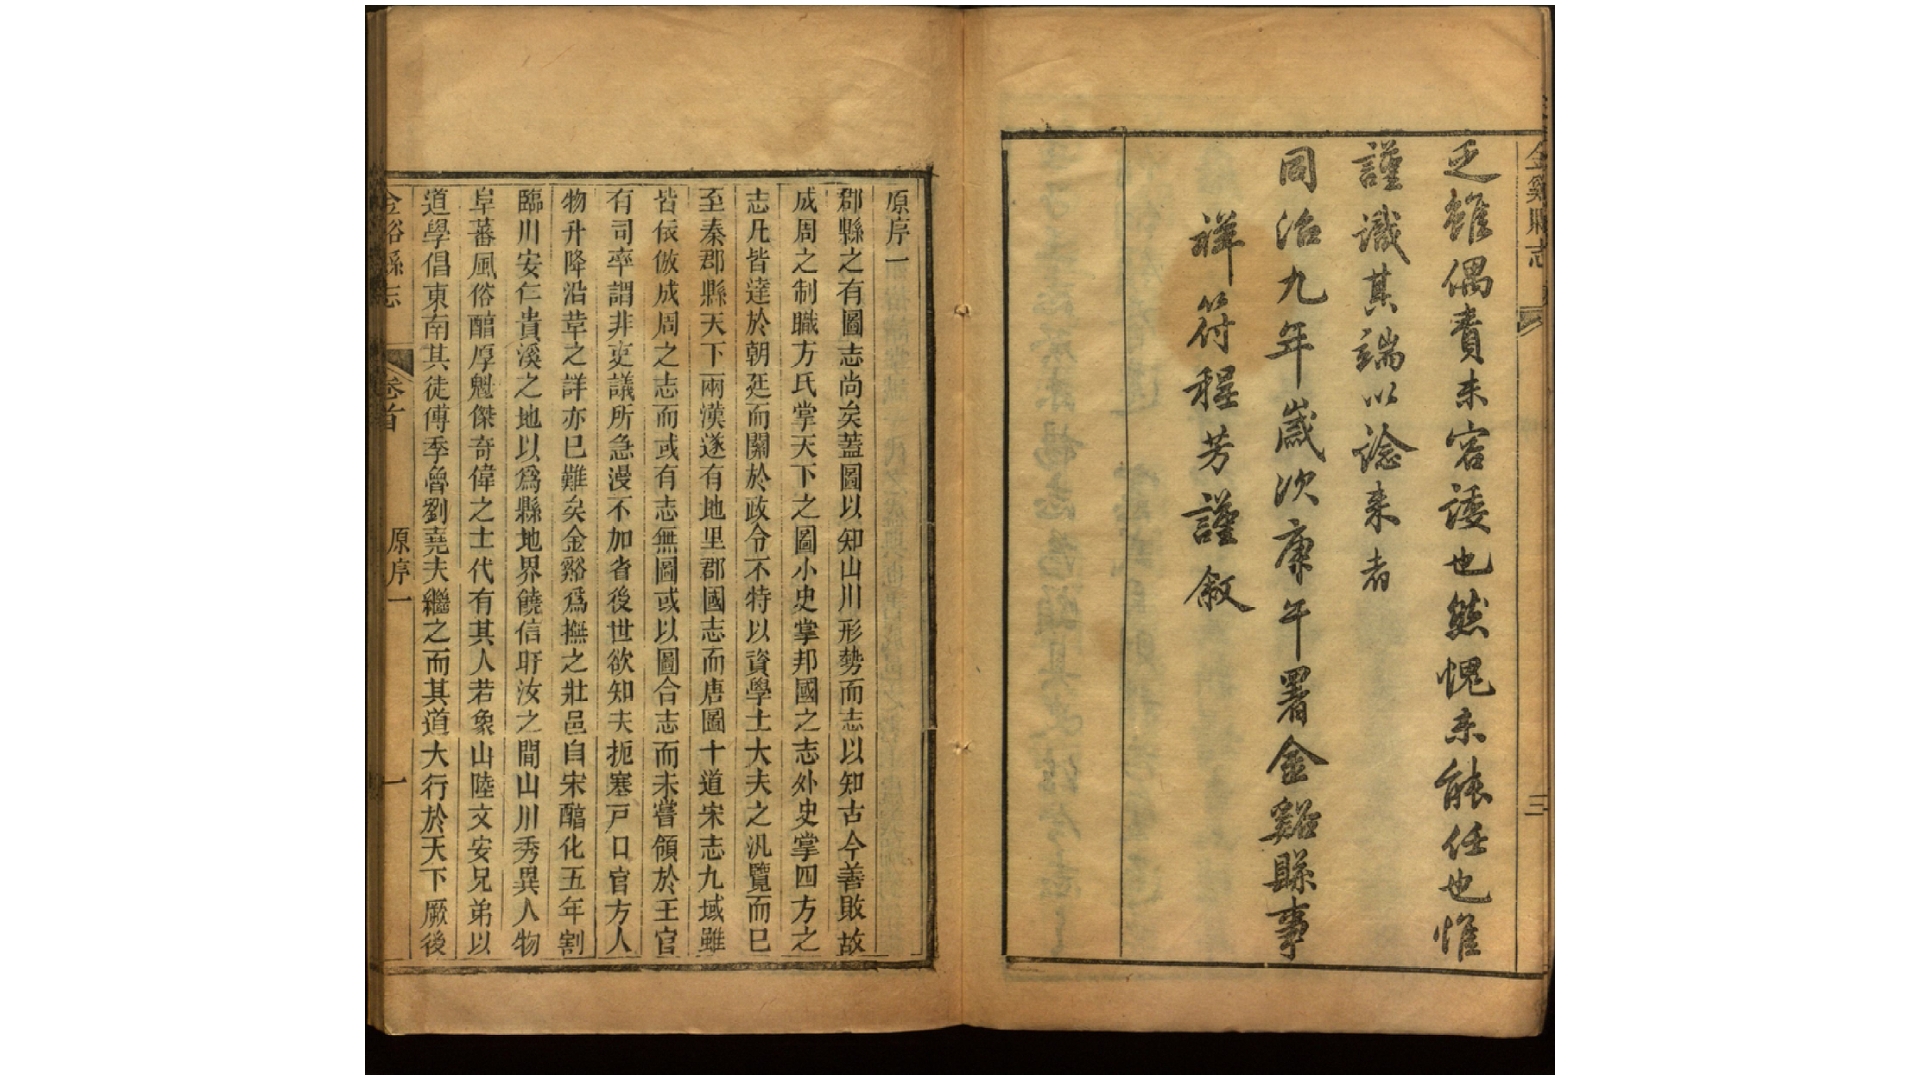 金谿縣志
三
乏雖偶責未容諉也然愧未能任也惟
謹識其端以諗来者
同治九年歲次庚午署金谿縣事
祥符程芳謹敘
原序一
郡縣之有圖志尚矣蓋圖以知山川形勢而志以知古今善敗故
成周之制職方氏掌天下之圖小史掌邦國之志外史掌四方之
志凡皆達於朝廷而關於政令不特以資學士大夫之汎覽而已
至秦郡縣天下兩漢遂有地里郡國志而唐圖十道宋志九域雖
皆依倣成周之志而或有志無圖或以圖合志而未嘗領於王官
有司率謂非吏議所急漫不加省後世欲知夫扼塞戸口官方人
物升降沿革之詳亦已難矣金谿爲撫之壯邑自宋醕化五年割
臨川安仁貴溪之地以爲縣地界饒信盱汝之間山川秀異人物
阜蕃風俗醕厚魁傑奇偉之士代有其人若象山陸文安兄弟以
道學倡東南其徒傅季魯劉堯夫繼之而其道大行於天下厥後
金谿縣志
卷首
原序一
一